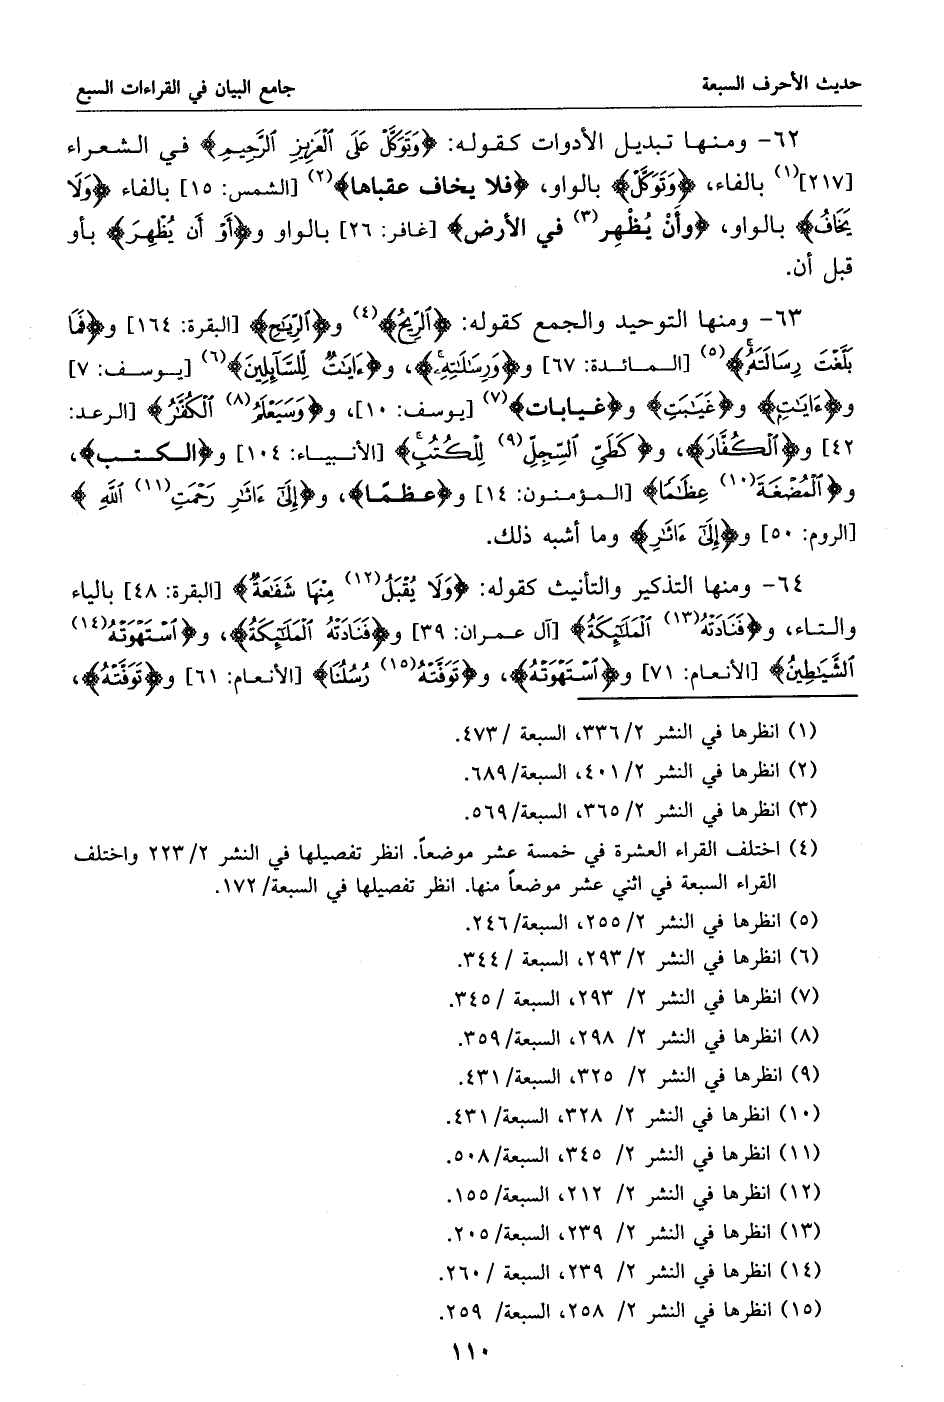 حديث الأحرف السبعة
جامع البيان في القراءات السبع
٦٢- ومنها تبديل الأدوات كقوله: ﴿وَتَوَكَّلْ عَلَى ٱلْعَزِيزِ ٱلرَّحِيمِ﴾ في الشعراء
[٢١٧](١) بالفاء، ﴿وَتَوَكَّلْ﴾ بالواو، ﴿فلا يخاف عقباها﴾(٢) [الشمس: ١٥] بالفاء ﴿وَلَا
يَخَافُ﴾ بالواو، ﴿وأنْ يُظْهِر(٣) في الأرض﴾ [غافر: ٢٦] بالواو و﴿أَوْ أَن يُظْهِرَ﴾ بأو
قبل أن.
٦٣- ومنها التوحيد والجمع كقوله: ﴿ٱلرِّيحُ﴾(٤) و﴿ٱلرِّيَٰحِ﴾ [البقرة: ١٦٤] و﴿فَمَا
بَلَّغْتَ رِسَالَتَهُۥ﴾(٥) [المائدة: ٦٧] و﴿وَرِسَٰلَٰتِهِۦ﴾، و﴿ءَايَٰتٌ لِّلسَّآئِلِينَ﴾(٦) [يوسف: ٧]
و﴿ءَايَٰتٍ﴾ و﴿غَيَٰبَتِ﴾ و﴿غيابات﴾(٧) [يوسف: ١٠]، و﴿وَسَيَعْلَمُ(٨) ٱلْكُفَّٰرُ﴾ [الرعد:
٤٢] و﴿ٱلْكُفَّارَ﴾، و﴿كَطَيِّ ٱلسِّجِلِّ(٩) لِلْكُتُبِ﴾ [الأنبياء: ١٠٤] و﴿الكتب﴾،
و﴿ٱلْمُضْغَةَ(١٠) عِظَٰمًا﴾ [المؤمنون: ١٤] و﴿عظمًا﴾، و﴿إِلَىٰٓ ءَاثَٰرِ رَحْمَتِ(١١) ٱللَّهِ﴾
[الروم: ٥٠] و﴿إِلَىٰٓ ءَاثَٰرِ﴾ وما أشبه ذلك.
٦٤- ومنها التذكير والتأنيث كقوله: ﴿وَلَا يُقْبَلُ(١٢) مِنْهَا شَفَٰعَةٌ﴾ [البقرة: ٤٨] بالياء
والتاء، و﴿فَنَادَتْهُ(١٣) ٱلْمَلَٰٓئِكَةُ﴾ [آل عمران: ٣٩] و﴿فَنَادَتْهُ ٱلْمَلَٰٓئِكَةُ﴾، و﴿ٱسْتَهْوَتْهُ(١٤)
ٱلشَّيَٰطِينُ﴾ [الأنعام: ٧١] و﴿ٱسْتَهْوَتْهُ﴾، و﴿تَوَفَّتْهُ(١٥) رُسُلُنَا﴾ [الأنعام: ٦١] و﴿تَوَفَّتْهُ﴾،
(١) انظرها في النشر ٢/ ٣٣٦، السبعة /٤٧٣.
(٢) انظرها في النشر ٢/ ٤٠١، السبعة/ ٦٨٩.
(٣) انظرها في النشر ٢/ ٣٦٥، السبعة/ ٥٦٩.
(٤) اختلف القراء العشرة في خمسة عشر موضعاً. انظر تفصيلها في النشر ٢/ ٢٢٣ واختلف
القراء السبعة في اثني عشر موضعاً منها. انظر تفصيلها في السبعة/ ١٧٢.
(٥) انظرها في النشر ٢/ ٢٥٥، السبعة/ ٢٤٦.
(٦) انظرها في النشر ٢/ ٢٩٣، السبعة /٣٤٤.
(٧) انظرها في النشر ٢/ ٢٩٣، السبعة /٣٤٥.
(٨) انظرها في النشر ٢/ ٢٩٨، السبعة/ ٣٥٩.
(٩) انظرها في النشر ٢/ ٣٢٥، السبعة/ ٤٣١.
(١٠) انظرها في النشر ٢/ ٣٢٨، السبعة/ ٤٣١.
(١١) انظرها في النشر ٢/ ٣٤٥، السبعة/ ٥٠٨.
(١٢) انظرها في النشر ٢/ ٢١٢، السبعة/ ١٥٥.
(١٣) انظرها في النشر ٢/ ٢٣٩، السبعة/ ٢٠٥.
(١٤) انظرها في النشر ٢/ ٢٣٩، السبعة /٢٦٠.
(١٥) انظرها في النشر ٢/ ٢٥٨، السبعة/ ٢٥٩.
١١٠